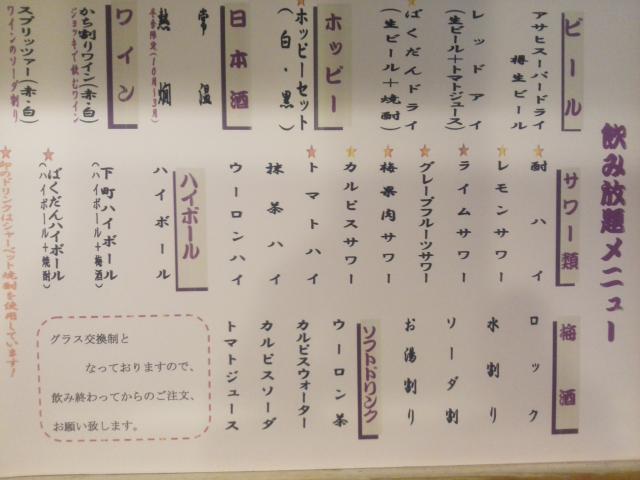 飲み放題メニュー
ビール
アサヒスーパードライ
樽生ビール
レッドアイ
(生ビール+トマトジュース)
★ばくだんドライ
(生ビール+焼酎)
ホッピー
★ホッピーセット
(白・黒)
日本酒
常温
熱燗
ワイン
かち割りワイン(赤・白)
ジョッキで飲むワイン
スプリッツァー(赤・白)
ワインのソーダ割り
サワー類
★酎ハイ
★レモンサワー
★ライムサワー
★グレープフルーツサワー
★梅果肉サワー
★カルピスサワー
★トマトハイ
抹茶ハイ
ウーロンハイ
ハイボール
ハイボール
下町ハイボール
(ハイボール+梅酒)
★ばくだんハイボール
(ハイボール+焼酎)
★印のドリンクはシャーベット焼酎を使用しています!
梅酒
ロック
水割り
ソーダ割
お湯割り
ソフトドリンク
ウーロン茶
カルピスウォーター
カルピスソーダ
トマトジュース
グラス交換制と
なっておりますので、
飲み終わってからのご注文、
お願い致します。